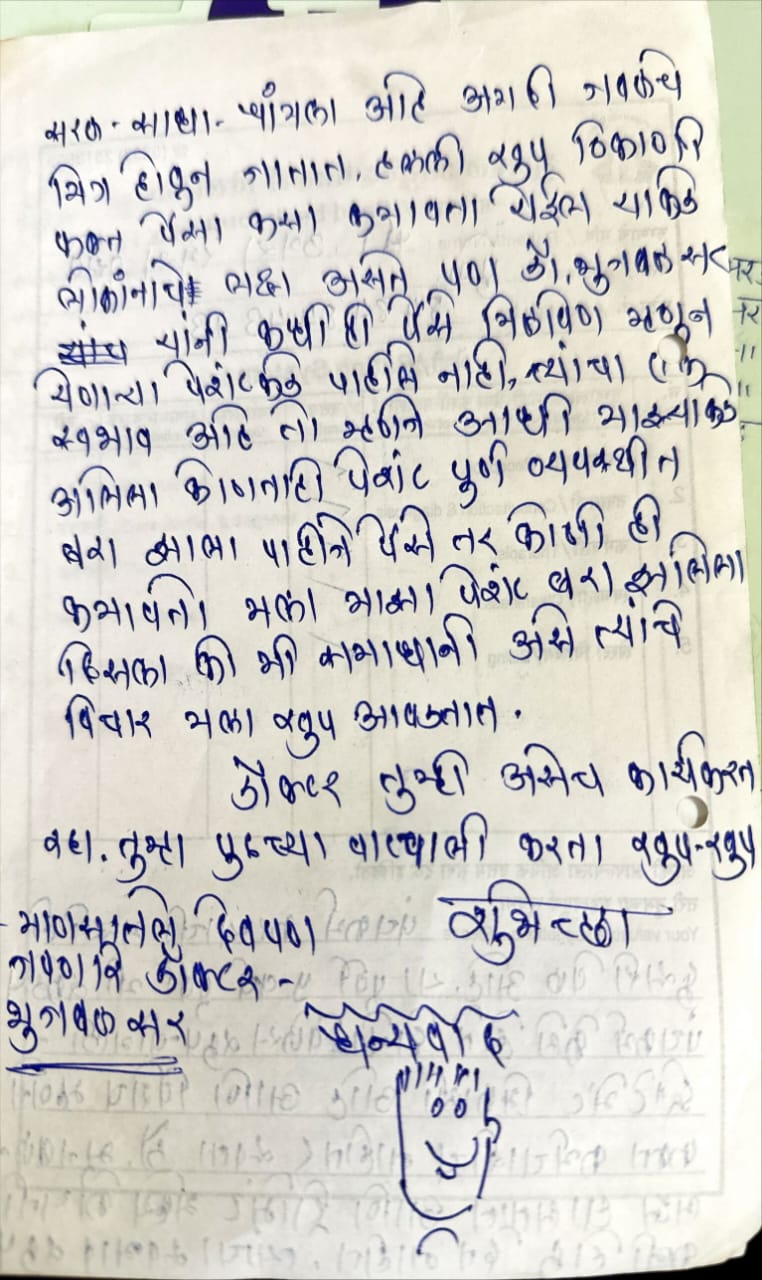 सरळ - साधा - चांगला आहे अगदी जवळचे
मित्र होऊन जातात. हल्ली खुप ठिकाणी
फक्त पैसा कसा कमावता येईल याकडे
लोकांनाचे लक्ष असते पण डॉ. भुजबळ सर
यांनी कधी ही पैसे मिळविणे म्हणून
येणाऱ्या पेशंटकडे पाहीले नाही, त्यांचा एक
स्वभाव आहे तो म्हणजे आधी माझ्याकडे
आलेला कोणताही पेशंट पुर्ण व्यवस्थीत
बरा झाला पाहीजे पैसे तर कोणी ही
कमावतो मला माझा पेशंट बरा झालेला
दिसला की मी समाधानी असे त्यांचे
विचार मला खुप आवडतात.
डॉक्टर तुम्ही असेच कार्यकरत
रहा. तुम्हा पुढच्या वाटचाली करता खुप-खुप
शुभेच्छा
माणसातले देवपण
जपणारे डॉक्टर -
भुजबळ सर
धन्यवाद